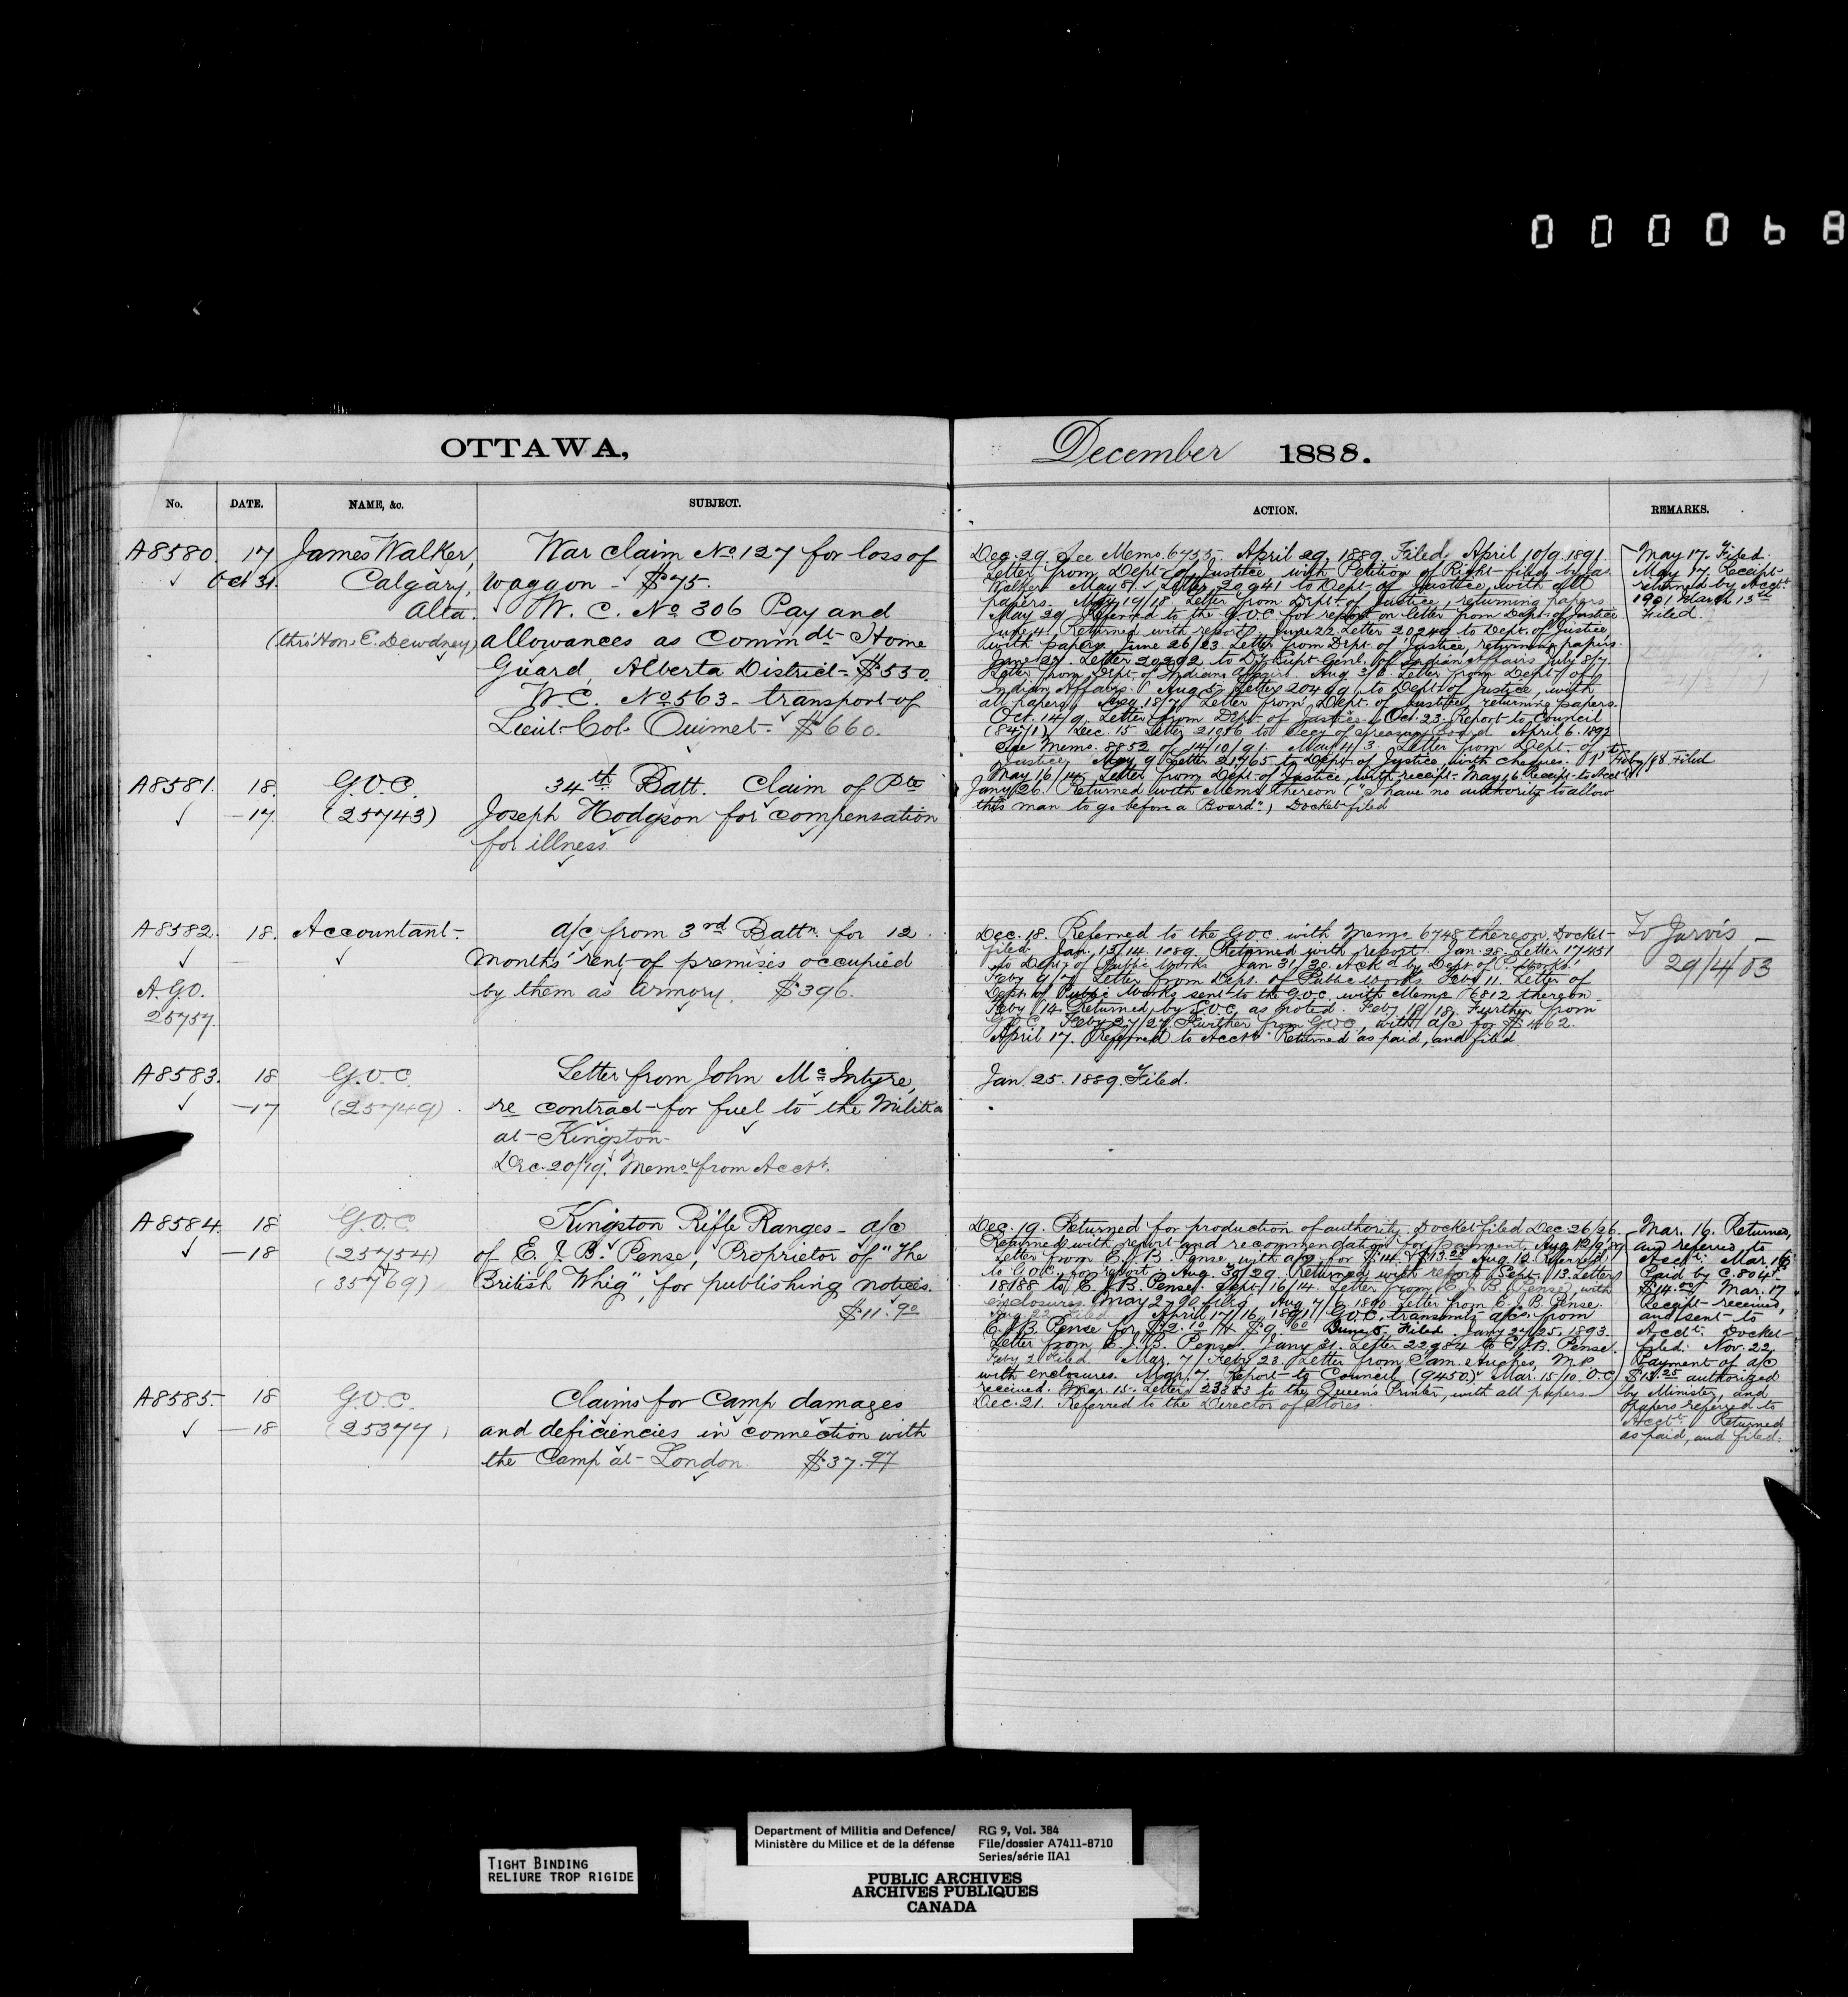 000068
OTTAWA,
No. DATE. NAME, &c. SUBJECT.
A8580. 17 James Walker, War claim No. 127 for loss of
Oct 31. Calgary, waggon - $75.
Alta. W. C. No 306 Pay and
(thro' Hon. E. Dewdney) allowances as Commdt Home
Guard, Alberta District - $550.
W.C. No 563 - transport of
Lieut-Col. Ouimet - $660.
A8581. 18. G.O.C. 34th Batt. Claim of Pte
- 17. (25743) Joseph Hodgson for compensation
for illness.
A8582. 18. Accountant. a/c from 3rd Battn. for 12
months' rent of premises occupied
A.G.O. by them as armory. $396.
25757.
A8583. 18 G.O.C. Letter from John McIntyre,
-17 (25749). re contract for fuel to the Militia
at Kingston.
Dec. 20/19. Memo. from Acctt.
A8584. 18 G.O.C. Kingston Rifle Ranges - a/c
-18 (25754) of E. J. B. Pense, Proprietor of "The
(35769) British Whig", for publishing notices.
$11.90
A8585. 18 G.O.C. Claims for Camp damages
-18 (25377) and deficiencies in connection with
the Camp at London $37.97
December 1888.
ACTION. REMARKS.
Dec. 29 See Memo. 6755. April 29, 1889. Filed. April 10/9. 1891.
Letter from Dept. of Justice with Petition of Right filed by
Walker. May 8. Letter to Dept. of Justice, with all
papers. May 19/18. Letter from Dept. of Justice, returning papers.
May 29 Referred to the G.O.C. for report on letter from Dept. of Justice.
June 4. Returned with report. June 22 Letter 20249 to Dept. of Justice,
with papers. June 26/23. Letter from Dept. of Justice, returning papers.
June 27. Letter 20292 to Dy. Supt. Genl. of Indian Affairs. July 8/7.
Letter from Dept. of Indian Affairs. Aug. 3/ Letter from Dept. of
Indian Affairs. Aug. 5. Letter to Dept. of Justice, with
all papers. Aug. 18/7 Letter from Dept. of Justice, returning papers.
Oct. 14/9. Letter from Dept. of Justice. Oct. 23. Report to Council
(8471) Dec. 15. Letter 21056 to Secy of Treasury Board April 6. 1892
See Memo. 8852 of 14/10/91. May 4/3. Letter from Dept. of
Justice. May 9 Letter 21765 to Dept. of Justice, with cheques. 1st Feby/98 Filed
May 16/14. Letter from Dept. of Justice, with receipt. May 16 Receipt to Acctt.
May 17. Filed.
May 17. Receipt
returned by Acctt.
1901 March 13th
Filed.
Jany 26. Returned with Memo thereon ("I have no authority to allow
this man to go before a Board".) Docket filed.
Dec. 18. Referred to the G.O.C. with Memo 6748 thereon. Docket
filed. Jan. 15/14. 1889. Returned with report. Jan. 28. Letter 17451
to Dept. of Public Works. Jan. 31/30. Ackd by Dept. of P. Works.
Feby 9/ Letter from Dept. of Public Works. Feby 11. Letter of
Dept. of Public Works sent to the G.O.C. with Memo 6812 thereon.
Feby 14 Returned by G.O.C. as noted. Feby 19/18. Further from
G.O.C. Feby 27/27 Further from G.O.C., with a/c for $462.
April 17. Referred to Acctt. Returned as paid, and filed.
To Jarvis -
29/4/03
Jan. 25. 1889. Filed.
Dec. 19. Returned for production of authority. Docket filed. Dec. 26/26.
Returned with report and recommendation for payment. Aug 12/9.89
Letter from E. J. B. Pense, with a/cs for $14. & $13.25 Aug 12 Referred
to G.O.C. for report. Aug. 30/29. Returned with report. Sept. 13. Letter
18188 to E. J. B. Pense. Sept. 16/14. Letter from E. J. B. Pense, with
enclosures. May 2. 90 filed. Aug. 7/ 1890 Letter from E. J. B. Pense.
Aug 22 Filed. April 17/16, 1891. G.O.C. transmits a/cs from
E. J. B. Pense for $2.10 & $9.60 June 5. Filed. Jany 27/25. 1893.
Letter from E. J. B. Pense. Jany 31. Letter 22984 to E. J. B. Pense.
Feby 2 Filed. Mar. 7/Feby 23. Letter from Sam. Hughes, M.P.
with enclosures. Mar. 7. Report to Council (9450). Mar. 15/10. O.C.
received. Mar. 15. Letter 23383 to the Queen's Printer, with all papers.
Mar. 16. Returned,
and referred to
Acctt. Mar. 16
Paid by C. 804
$14.00 Mar. 17
Receipt received,
and sent to
Acctt. Docket
filed. Nov. 22,
Payment of a/c
$13.25 authorized
by Minister, and
papers referred to
Acctt. Returned
as paid, and filed.
Dec. 21. Referred to the Director of Stores.
TIGHT BINDING
RELIURE TROP RIGIDE
Department of Militia and Defence/ RG 9, Vol. 384
Ministère du Milice et de la défense File/dossier A7411-8710
Series/série IIA1
PUBLIC ARCHIVES
ARCHIVES PUBLIQUES
CANADA